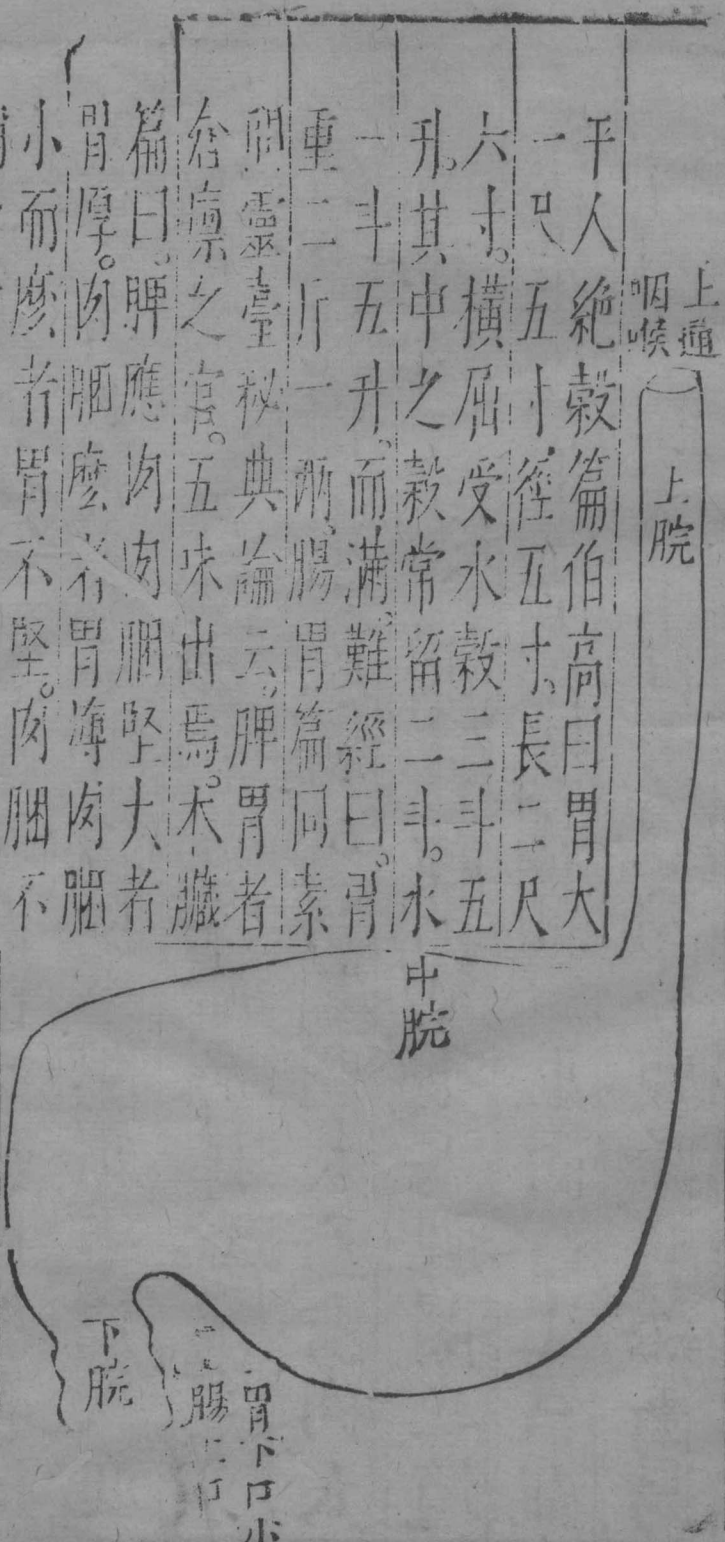 上通
咽喉
上脘
平人絶穀篇伯高曰胃大
一尺五寸徑五寸長二尺
六寸。橫屈受水穀三斗五
升。其中之穀常留二斗。水
一斗五升。而滿。難經曰。胃
重二斤一兩、腸胃篇同素
問靈臺秘典論云。脾胃者
倉廪之官。五味出焉。本臟
篇曰。脾應肉肉䐃堅大者
胃厚。肉䐃麽者胃薄肉䐃
小而麽者胃不堅。肉䐃不
中脘
下脘
胃下口小
腸上口